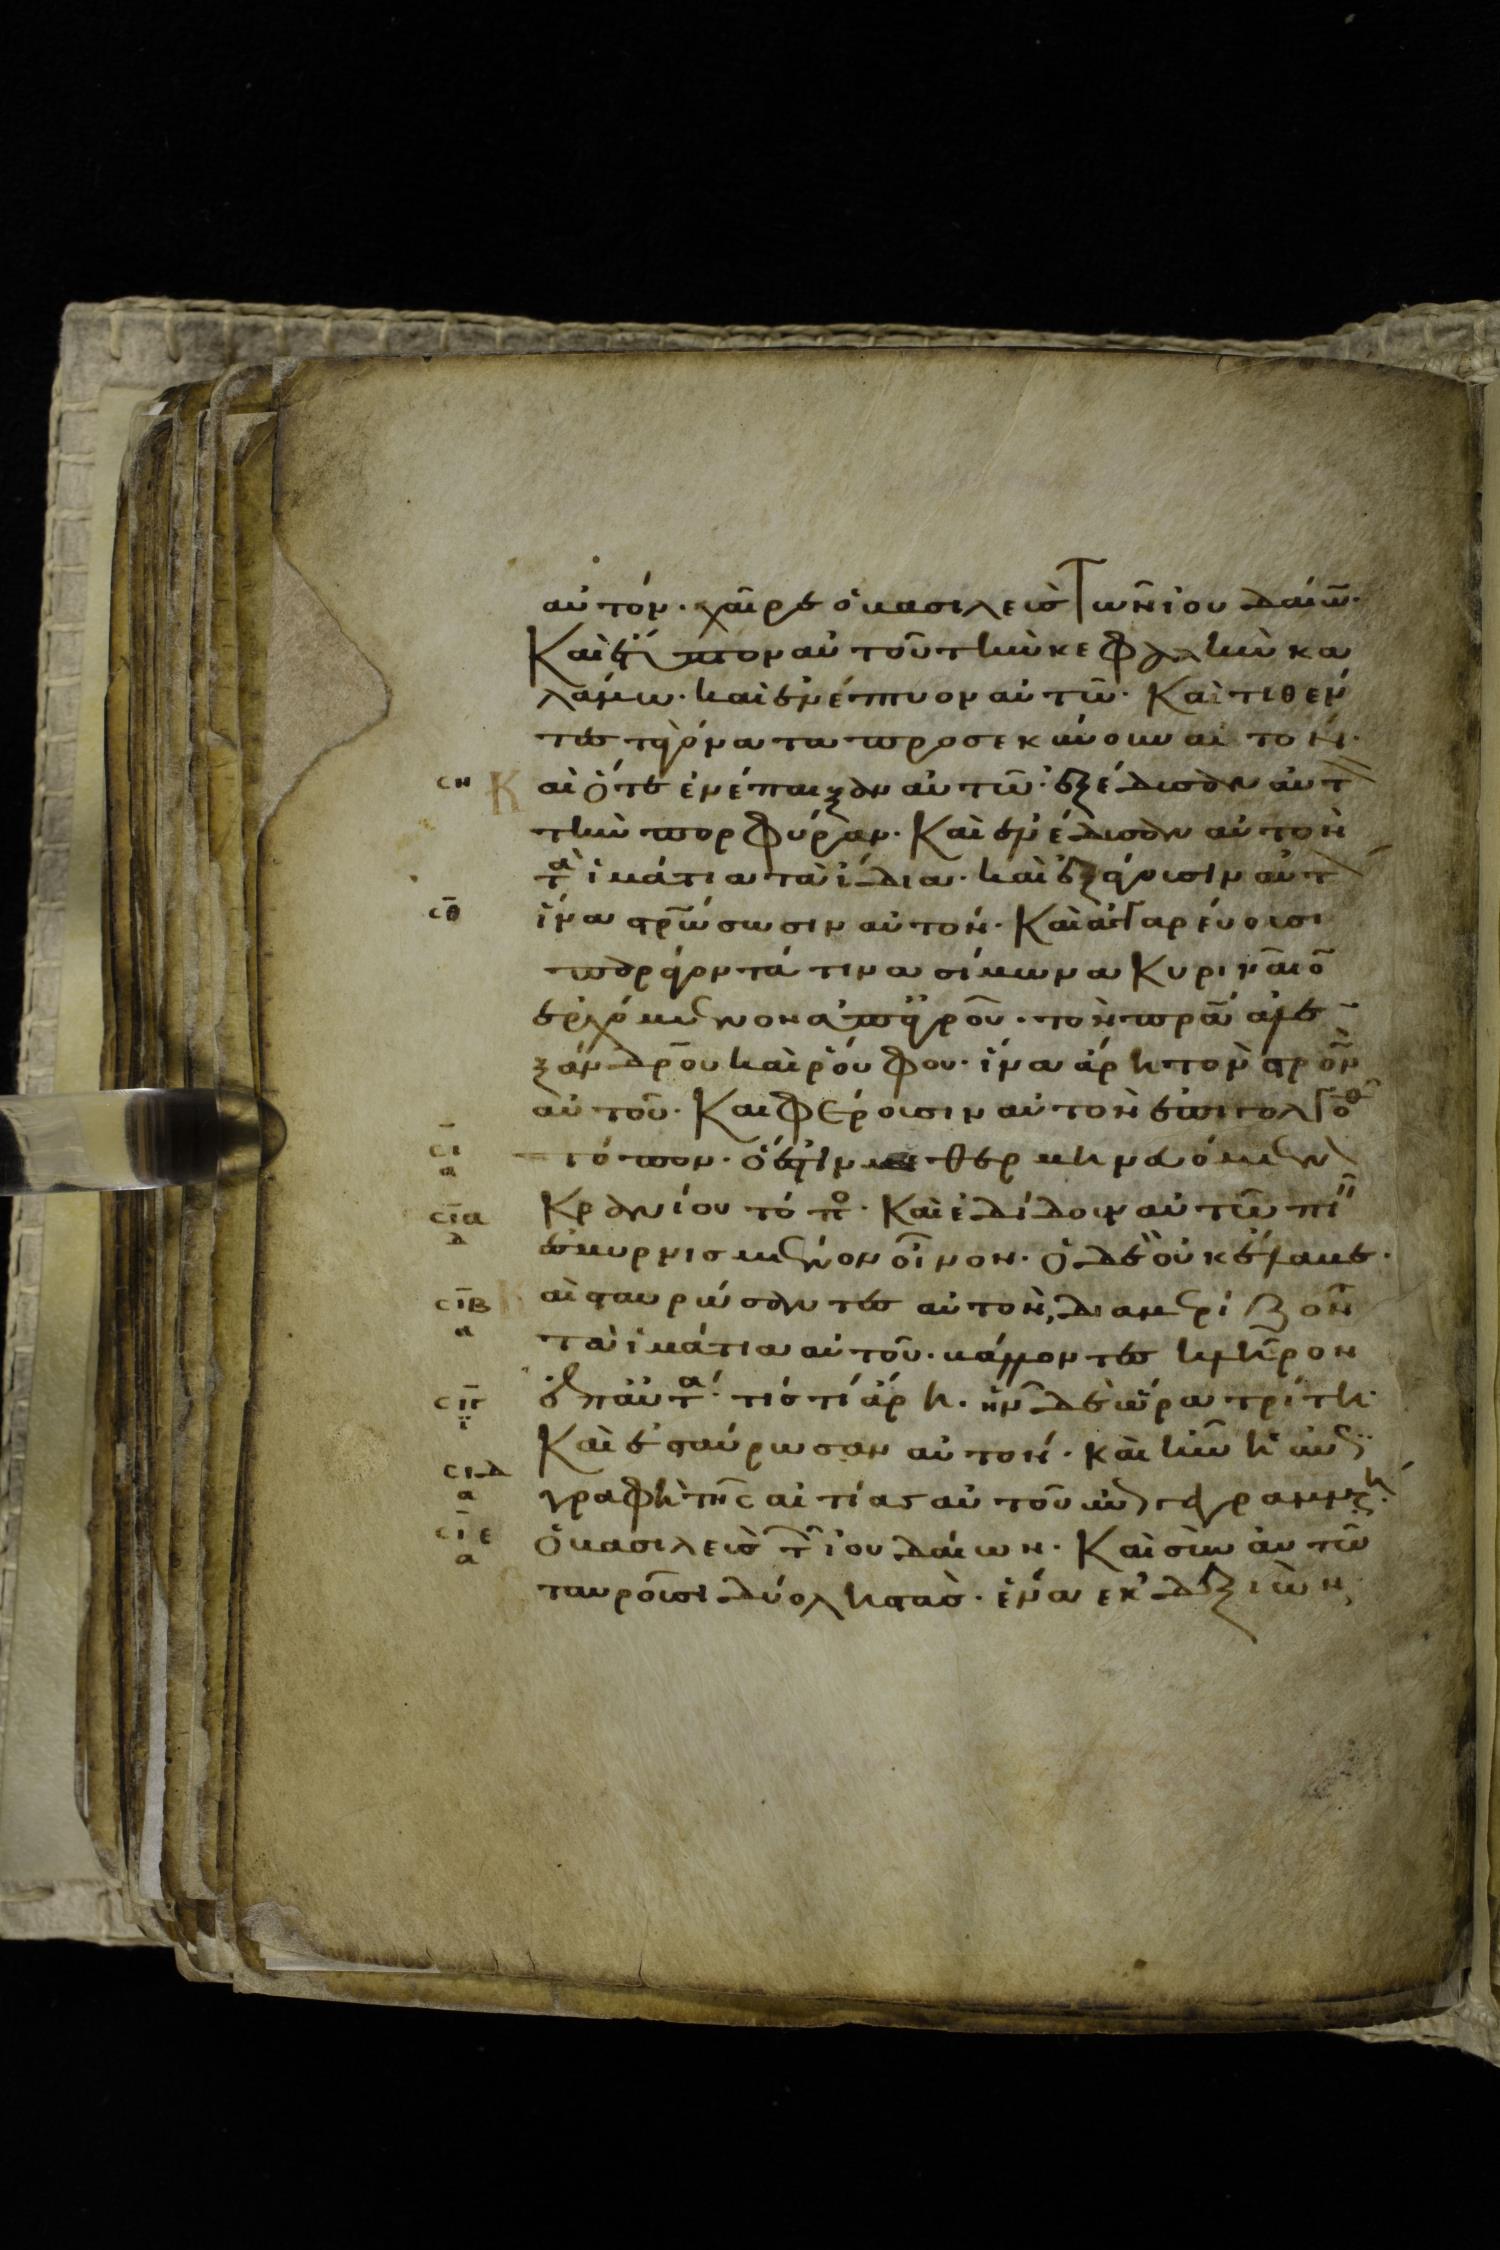 αὐτόν· χαῖρε ὁ βασιλεὺς τῶν ἰουδαίω̅·
Καὶ ἔτυπτον αὐτοῦ τὴν κεφαλὴν κα
λάμω· καὶ ἐνέπτυον αὐτῶ· Καὶ τιθέν
τες τὰ γόνατα προσεκύνουν αὐτόν·
cη Καὶ ὅτε ἐνέπαιξαν αὐτῶ· ἐξέδυσαν αὐτ
τὴν πορφύραν· Καὶ ἐνέδυσαν αὐτὸν
τὰ ἱμάτια τὰ ἴδια· καὶ ἐξάγουσιν αὐτ
cθ ἵνα στρώσωσιν αὐτόν· Καὶ ἀγγαρεύουσι
παράγοντά τινα σίμωνα Κυρηναῖο̅
ἐρχόμενον ἀπ ἀγροῦ· τὸν πρ̅α ἀλε
ξάνδρου καὶ ῥούφου· ἵνα ἄρη τὸν στρο̅ν
αὐτοῦ· Καὶ φέρουσιν αὐτὸν ἐπὶ γολγοθ
cι α τόπον· ὅ ἐστιν μεθερμηνευόμενον
cια δ Κρανίου τόπο· Καὶ ἐδίδουν αὐτῶ πι
ἐσμυρνισμένον οἶνον· ὁ δὲ οὐκ ἔλαβε·
cιβ α Καὶ σταυρώσαντες αὐτὸν, διαμερίζον
τὰ ἱμάτια αὐτοῦ· βάλλοντες κλῆρον
cιγ ι ἐπ αὐτά· τίς τί ἄρη· ἦν δὲ ὥρα τρίτη·
Καὶ ἐσταύρωσαν αὐτόν· καὶ ἦν ἡ ἐπι
cιδ α γραφὴ τῆς αἰτίας αὐτοῦ ἐπιγεγραμμένη·
cιε α ὁ βασιλεὺς τ̅ ἰουδαίων· Καὶ σὺν αὐτῶ
σταυροῦσι δύο ληστάς· ἕνα ἐκ δεξιῶν,